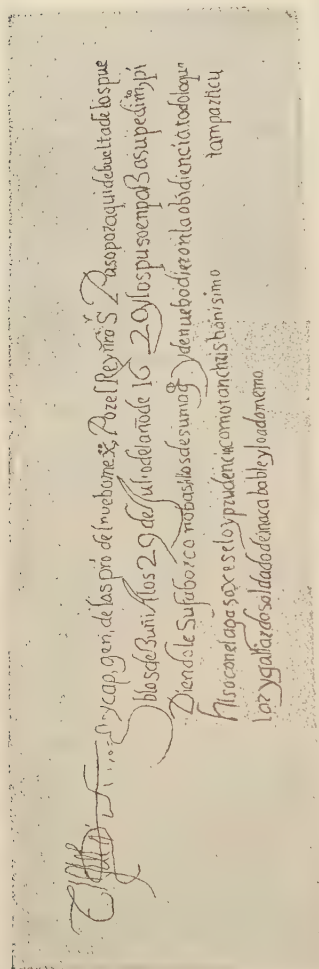 ycap, gen, delas pro del nuebo mex, Por el Rey nro S Paso por aqui de buelta de los pue
blos de Zuñi A los 29 de Julio del año de 16 20 y los puso en paz a su pedimto pi
diendole Su fabor como basallos de su magd y de nuebo dieron la obidiencia todo lo que
hiso con el agasaxe selo y prudencia como tan christianisimo tam particu
lar y gallardo soldado de inacabable y loado memo